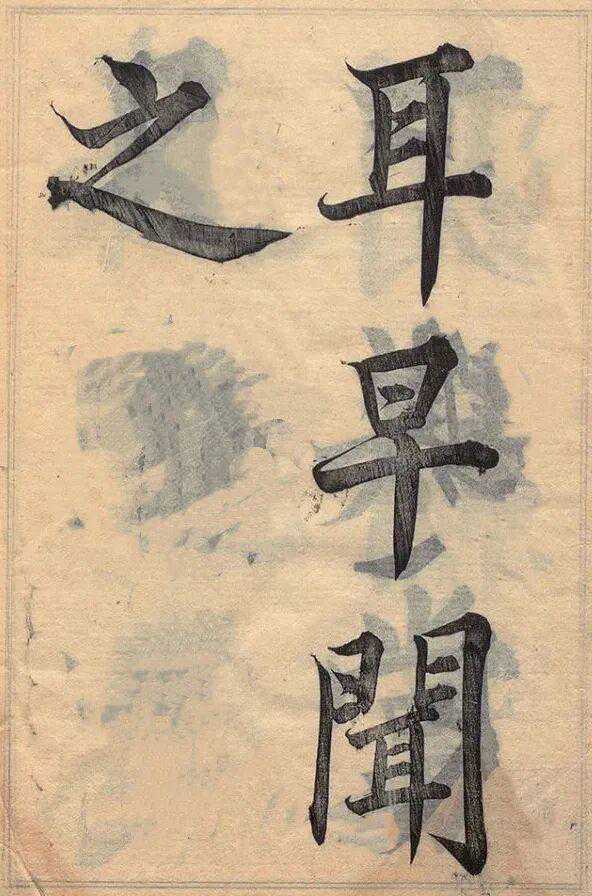 耳早聞
之